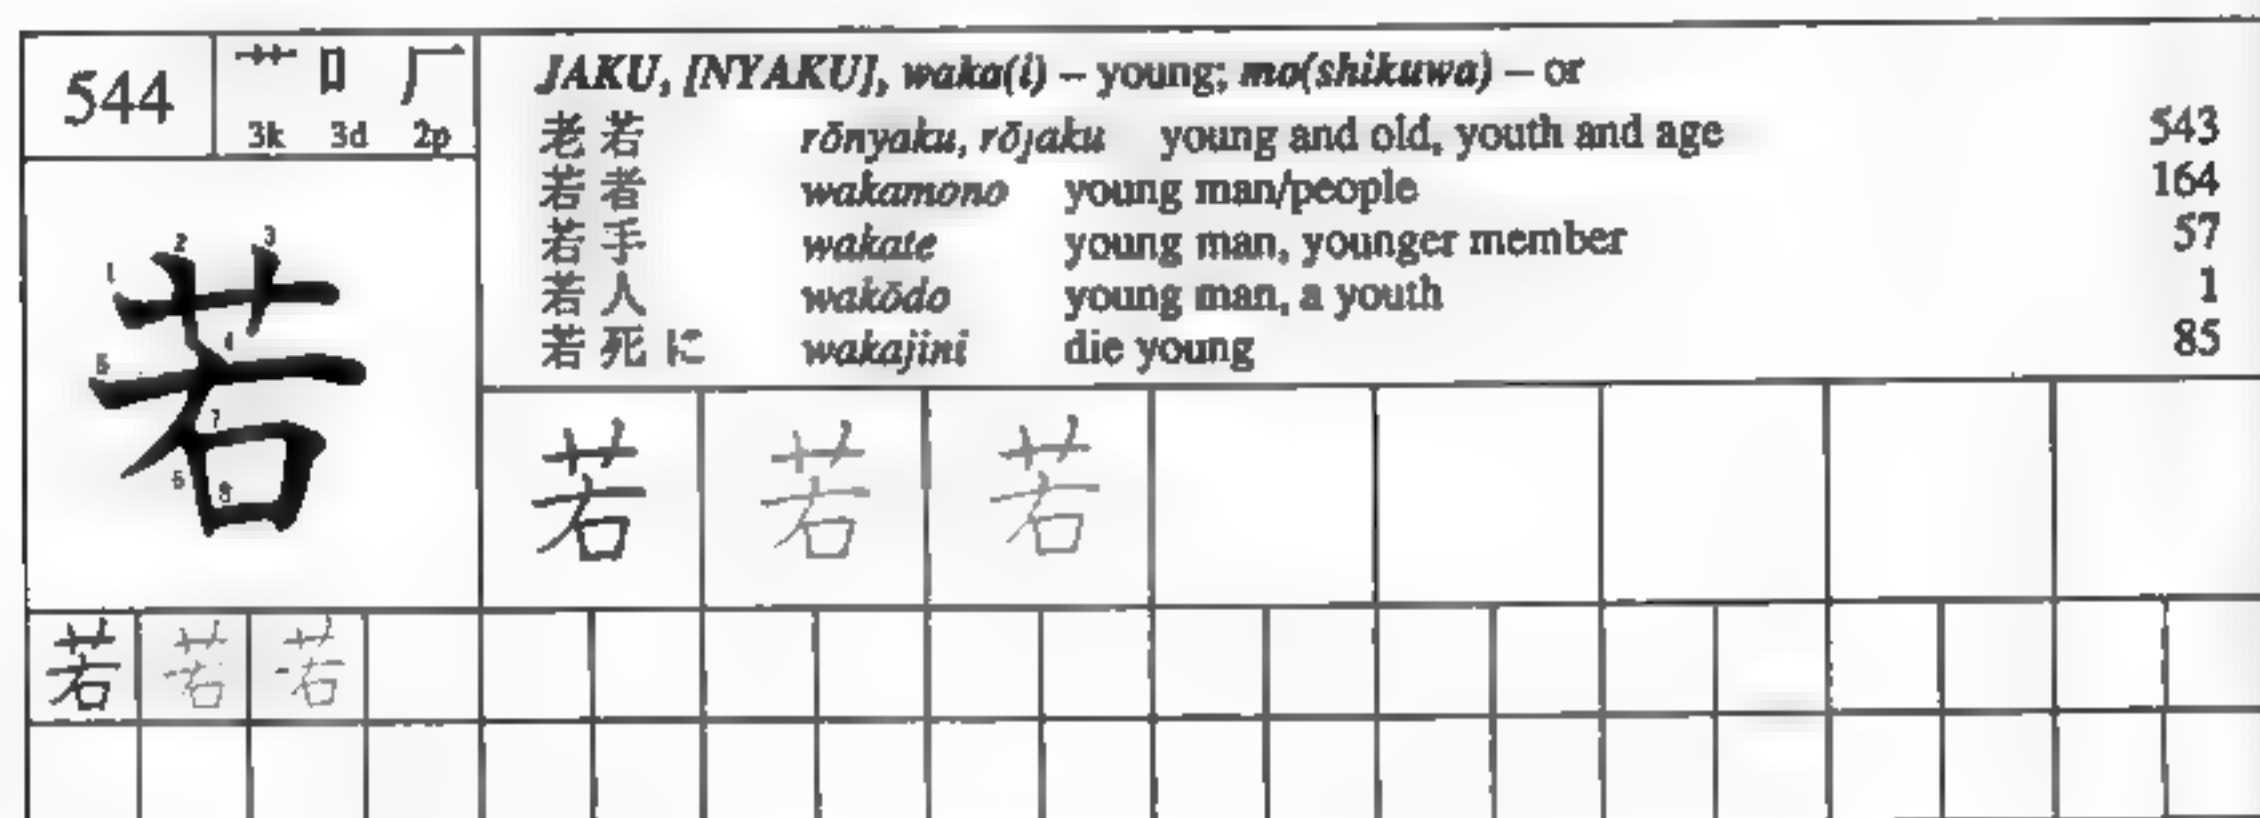 544 艹 口 厂
3k 3d 2p
JAKU, [NYAKU], waka(i) – young; mo(shikuwa) – or
老若 rōnyaku, rōjaku young and old, youth and age 543
若者 wakamono young man/people 164
若手 wakate young man, younger member 57
若人 wakōdo young man, a youth 1
若死に wakajini die young 85
1 2 3 4 5 6 7 8
若
若 若 若
若 若 若